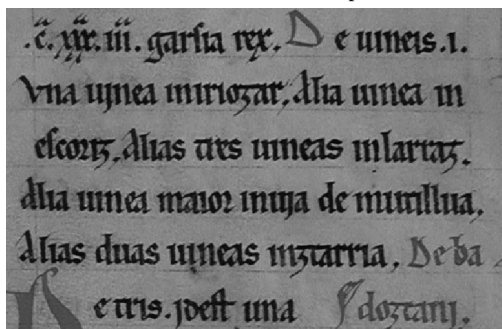 .c̃.xxx.iii. garsia rex. De uineis.i.
Vna uinea miriozar, Alia uinea in
escoriz, Alias tres uineas inlartaz.
Alia uinea maior inuja de mutillua,
Alias duas uineas inztarria, Deba
etris. jdest una doztanj.